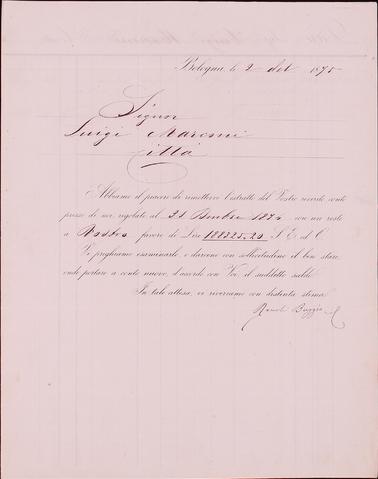 Bologna, li 2 Ott 1875
Signor
Luigi Marconi
Città
Abbiamo il piacere di rimettervi l'estratto del Vostro ricorde conto
presso di noi, regolato al 31 1874 con un resto
a Nostro favore di Lire 188225.20 S. E. ed O.
Vi preghiamo esaminarlo e darcene con sollecitudine il ben stare,
onde portare a conto nuovo, d'accordo con Voi, il suddetto saldo.
In tale attesa, vi riveriamo con distinta stima